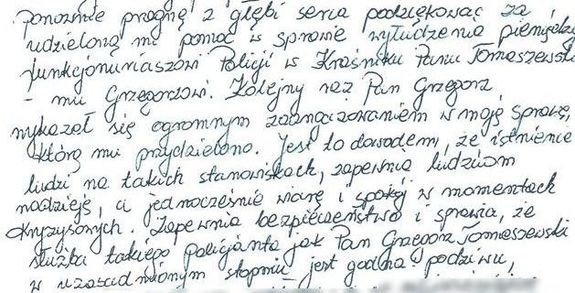 ponownie pragnę z głębi serca podziękować za
udzieloną mi pomoc w sprawie wyłudzenia pieniędzy
funkcjonariuszowi Policji w Kraśniku Panu Tomaszewski
- mu Grzegorzowi. Kolejny raz Pan Grzegorz
wykazał się ogromnym zaangażowaniem w moją sprawę,
którą mu przydzielono. Jest to dowodem, że istnienie
ludzi na takich stanowiskach, zapewnia ludziom
nadzieję, a jednocześnie wiarę i spokój w momentach
kryzysowych. Zapewnia bezpieczeństwo i sprawia, że
służba takiego policjanta jak Pan Grzegorz Tomaszewski
w uzasadnionym stopniu - jest godna podziwu,